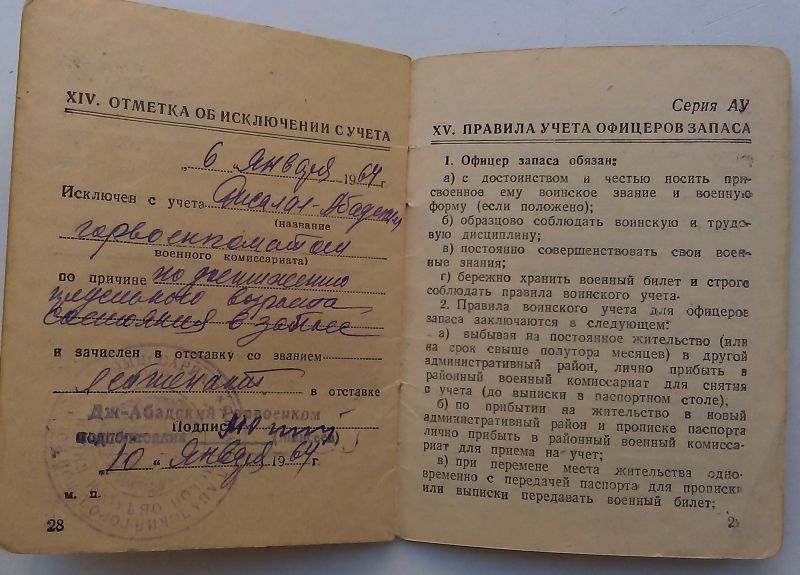 XIV. ОТМЕТКА ОБ ИСКЛЮЧЕНИИ С УЧЕТА
„6„ января 1964г.
Исключен с учета Джалал-Абадским
(название
горвоенкоматом
военного комиссариата)
по причине по достижению
предельного возраста
состояния в запасе
и зачислен в отставку со званием
лейтенант в отставке
Дж-Абадский Горвоенком
(Подпись)
подполковник
„10„ Января 1964г.
м. п.
28
Серия АУ
XV. ПРАВИЛА УЧЕТА ОФИЦЕРОВ ЗАПАСА
1. Офицер запаса обязан:
а) с достоинством и честью носить при-
своенное ему воинское звание и военную
форму (если положено);
б) образцово соблюдать воинскую и трудо-
вую дисциплину;
в) постоянно совершенствовать свои воен-
ные знания;
г) бережно хранить военный билет и строго
соблюдать правила воинского учета.
2. Правила воинского учета для офицеров
запаса заключаются в следующем:
а) выбывая на постоянное жительство (или
на срок свыше полутора месяцев) в другой
административный район, лично прибыть в
районный военный комиссариат для снятия
с учета (до выписки в паспортном столе);
б) по прибытии на жительство в новый
административный район и прописке паспорта
лично прибыть в районный военный комисса-
риат для приема на учет;
в) при перемене места жительства одно-
временно с передачей паспорта для прописки
или выписки передавать военный билет;